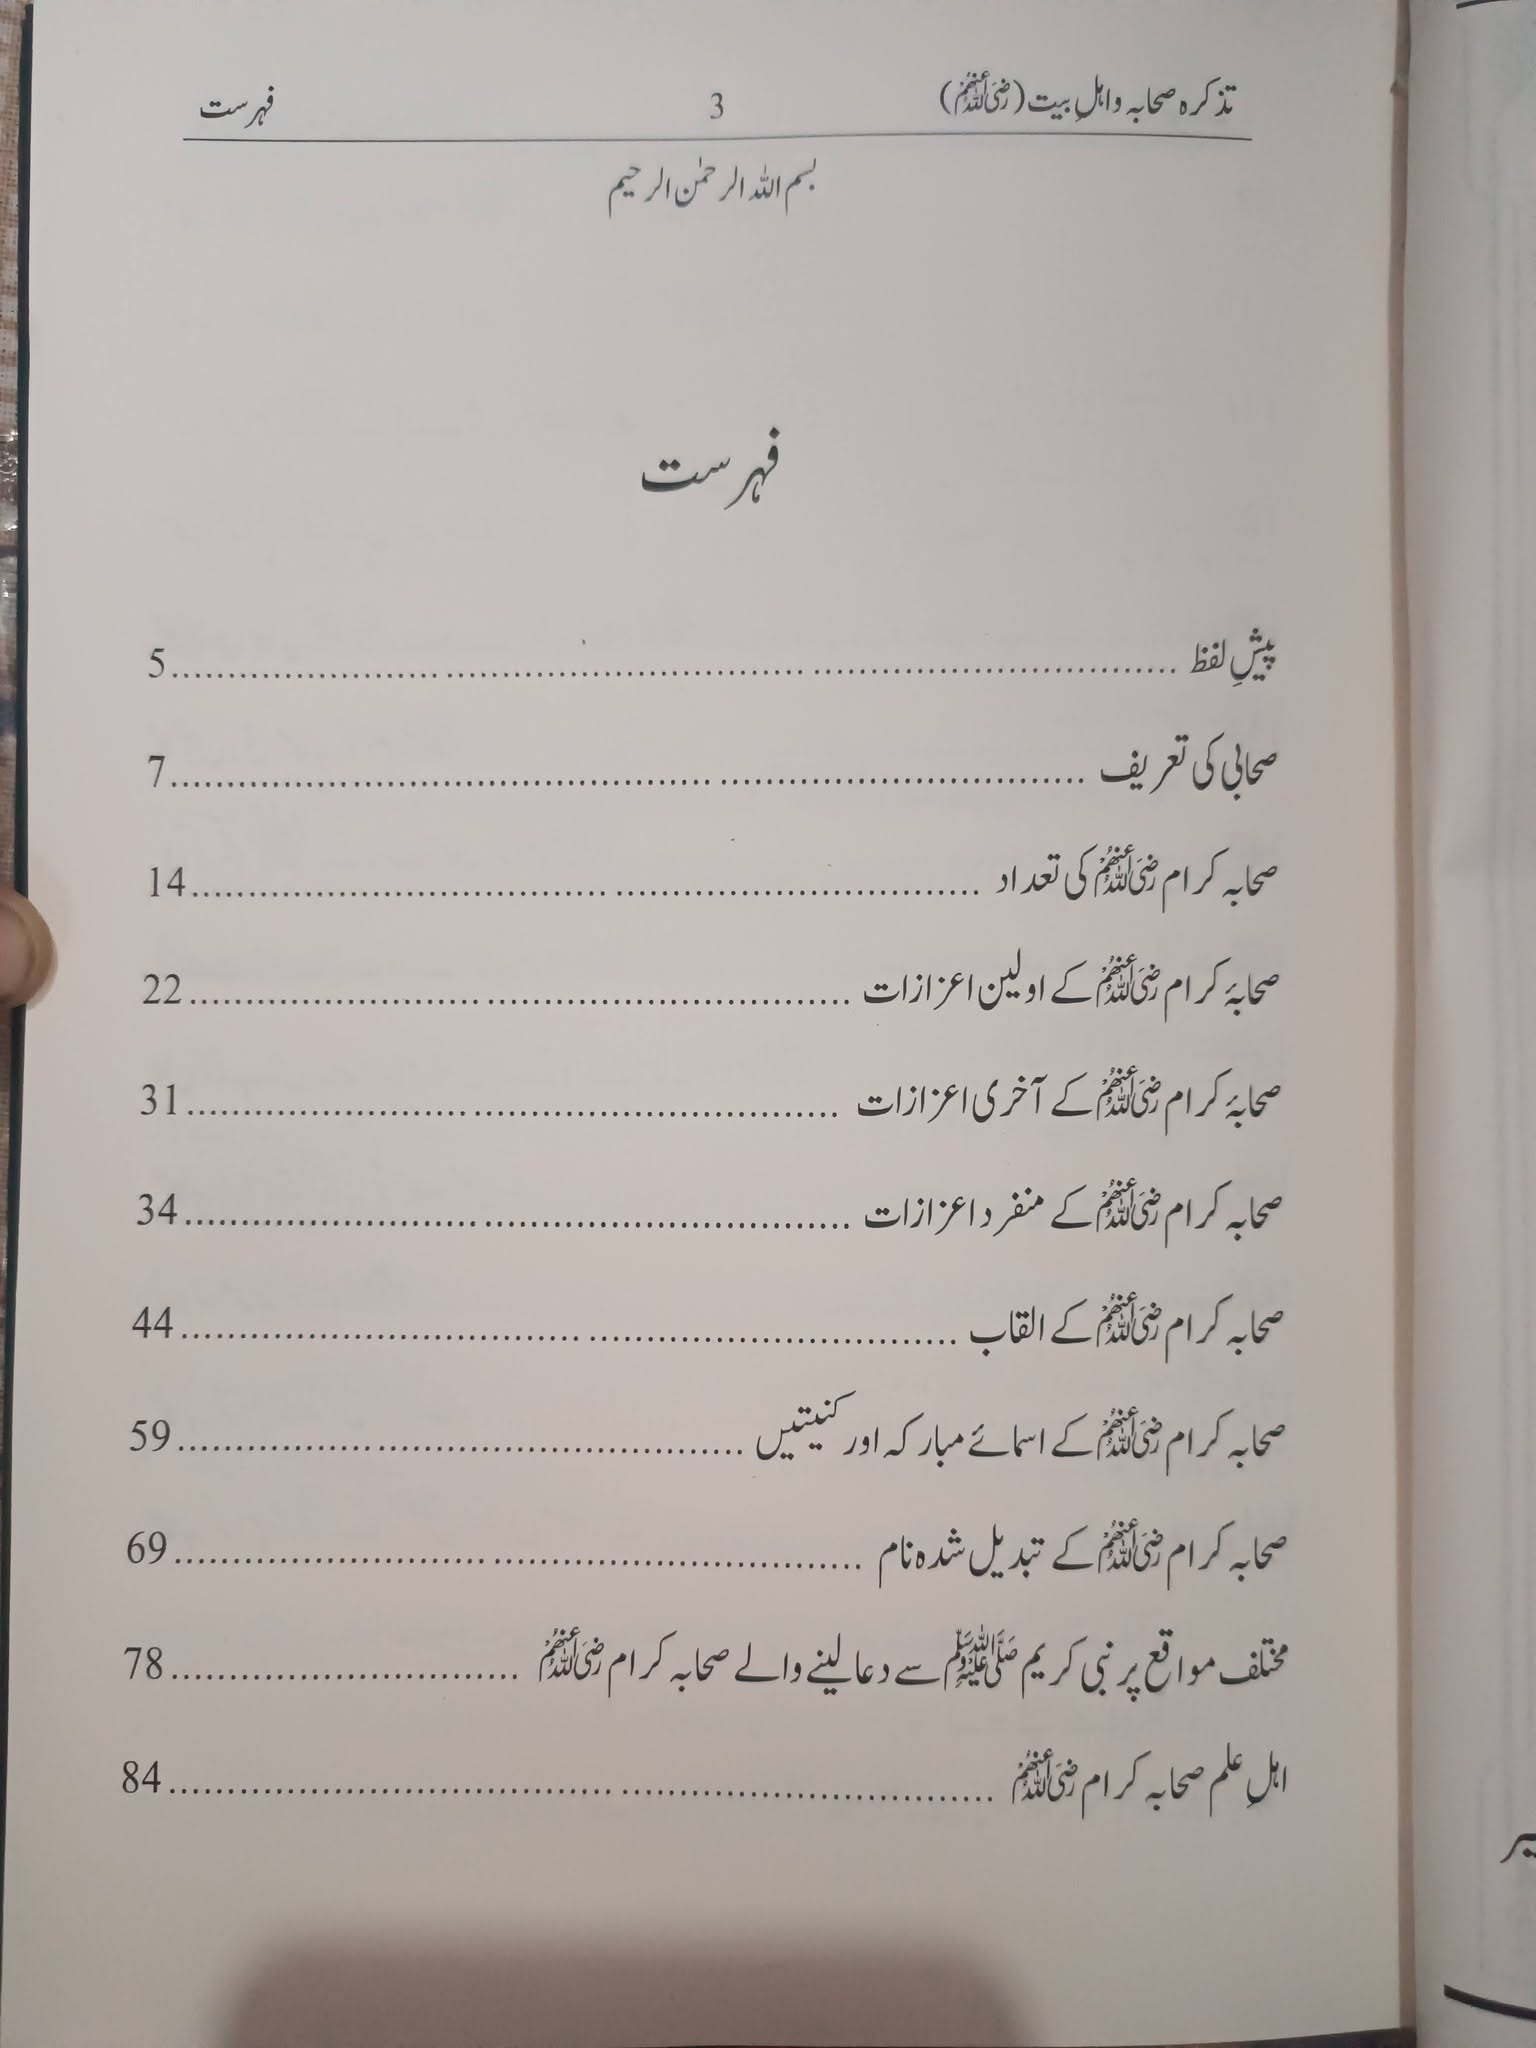 تذکرہ صحابہ و اہلِ بیت (رضی اللہ عنہم) 3 فہرست
بسم اللہ الرحمٰن الرحیم
فہرست
پیشِ لفظ ........................................ 5
صحابی کی تعریف ........................................ 7
صحابہ کرام رضی اللہ عنہم کی تعداد ........................................ 14
صحابۂ کرام رضی اللہ عنہم کے اولین اعزازات ........................................ 22
صحابۂ کرام رضی اللہ عنہم کے آخری اعزازات ........................................ 31
صحابہ کرام رضی اللہ عنہم کے منفرد اعزازات ........................................ 34
صحابہ کرام رضی اللہ عنہم کے القاب ........................................ 44
صحابہ کرام رضی اللہ عنہم کے اسمائے مبارکہ اور کنیتیں ........................................ 59
صحابہ کرام رضی اللہ عنہم کے تبدیل شدہ نام ........................................ 69
مختلف مواقع پر نبی کریم ﷺ سے دعا لینے والے صحابہ کرام رضی اللہ عنہم ........................................ 78
اہلِ علم صحابہ کرام رضی اللہ عنہم ........................................ 84